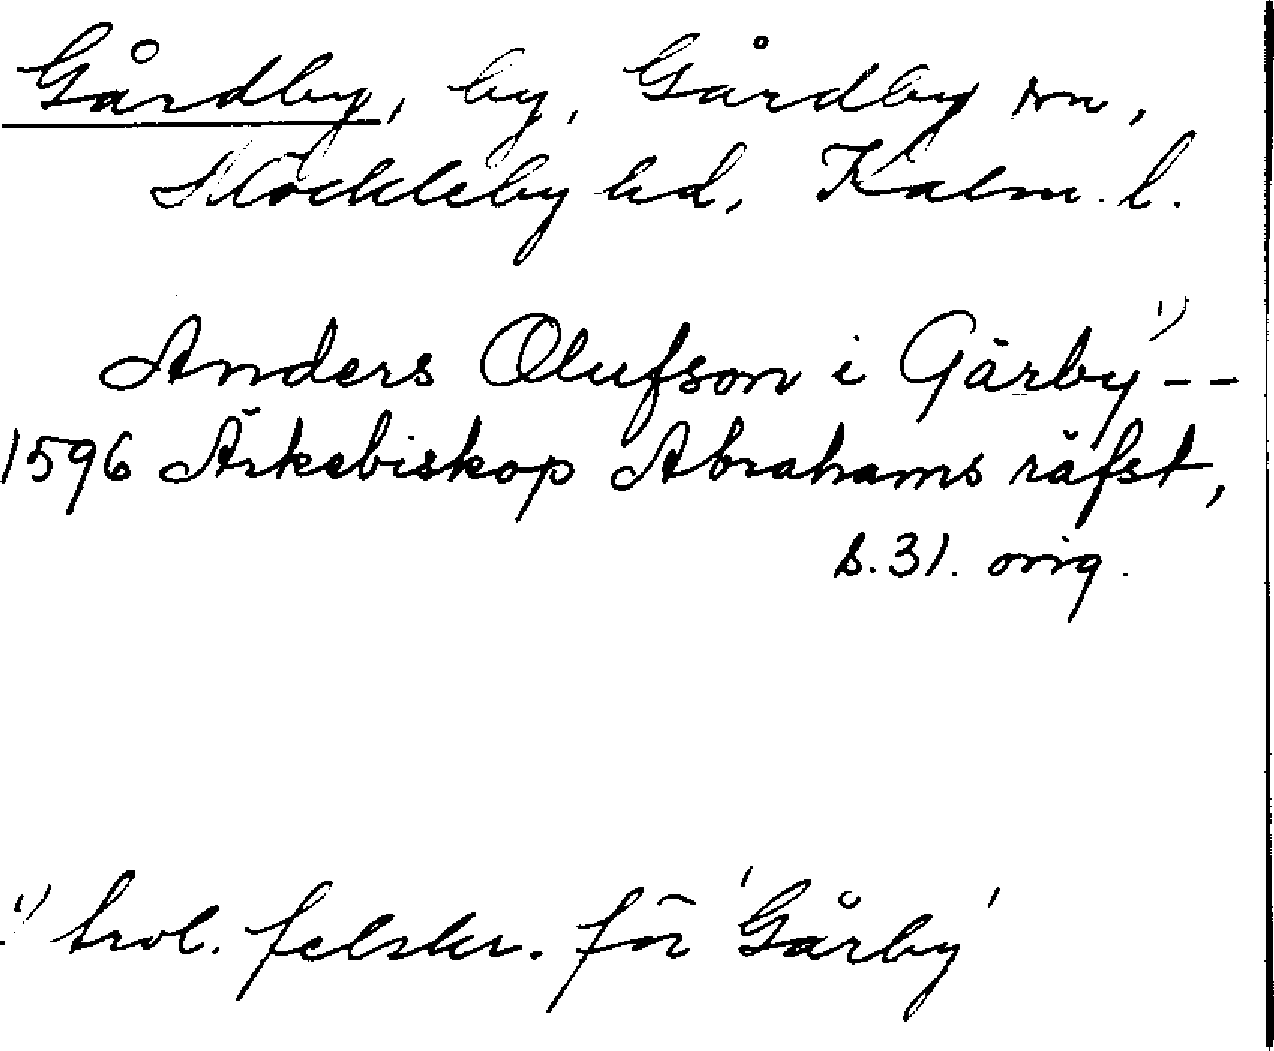 Gårdby, by, Gårdby sn,
Möckleby hd, Kalm. l.
Anders Olufson i Gärby¹⁾ --
1596 Ärkebiskop Abrahams räfst,
s. 31. orig.
¹⁾ trol. felskr. för 'Gårby'